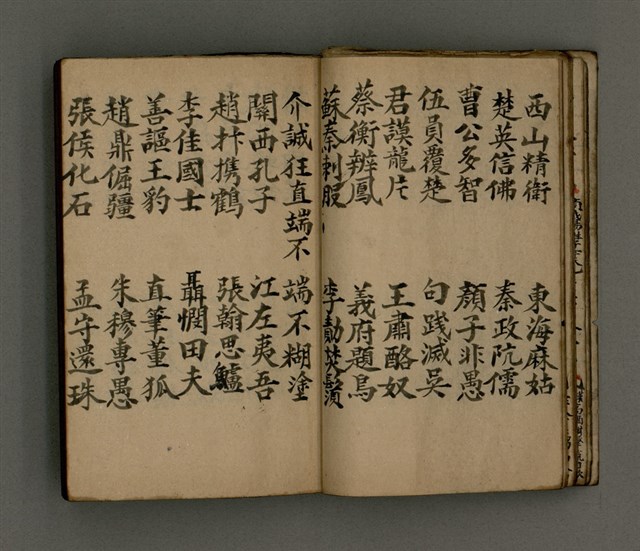 西山精衛 東海麻姑
楚英信佛 秦政阬儒
曹公多智 顏子非愚
伍員覆楚 句踐滅吳
君謨龍片 王肅酪奴
蔡衡辨鳳 義府題烏
蘇秦刺股 李勣焚鬚
介誠狂直端不 端不糊塗
關西孔子 江左夷吾
趙抃携鶴 張翰思鱸
李佳國士 聶憫田夫
善謳王豹 直筆董狐
趙鼎倔彊 朱穆專愚
張侯化石 孟守還珠